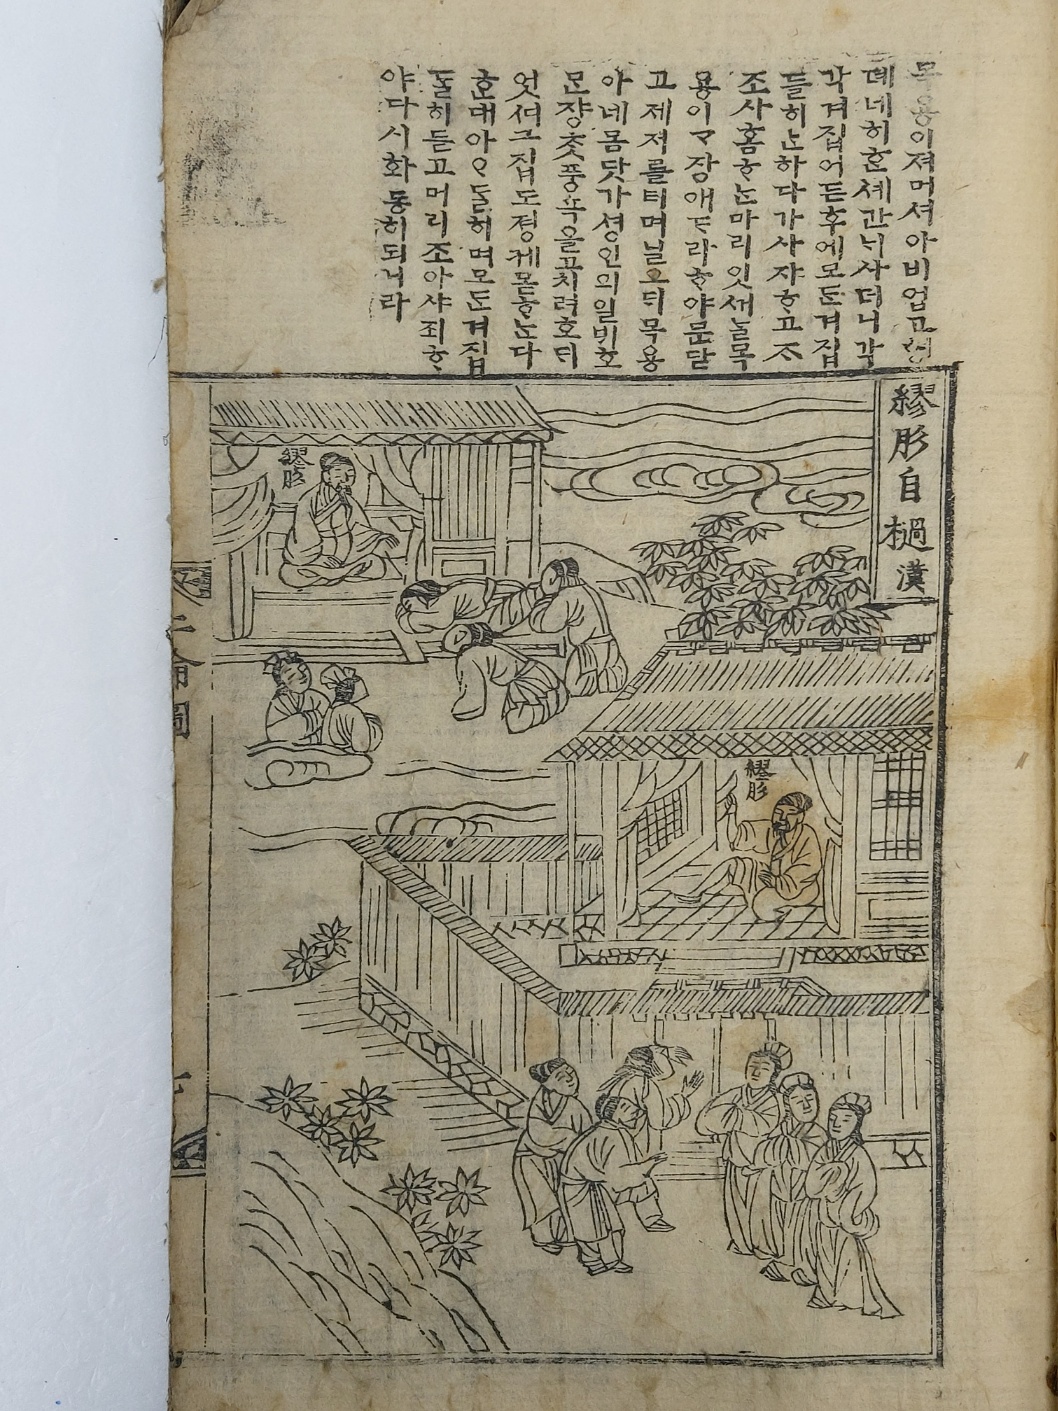 목용이져머셔아비업고성
뎨네히ᄒᆞᆫ셰간늬사더니각
각겨집어든후에모든겨집
들히ᄂᆞᆫ하다가사쟈ᄒᆞ고ᄌᆞ
조사홈ᄒᆞᄂᆞᆫ마리잇세ᄂᆞᆯ목
용이ᄀᆞ장애ᄃᆞ라ᄒᆞ야문닫
고제저를티며닐오ᄃᆡ목용
아네몸닷가셩인의일비호
믄쟝ᄎᆞᆺ풍쇽을고치려호ᄃᆡ
엇뎌그집도졍케몯ᄒᆞᄂᆞᆫ다
ᄒᆞᆫ대아ᄋᆞᄃᆞᆯ히며모든겨집
ᄃᆞᆯ히듣고머리조아샤죄ᄒᆞ
야다시화동히되니라
繆肜自撾
繆肜
繆肜
二倫圖